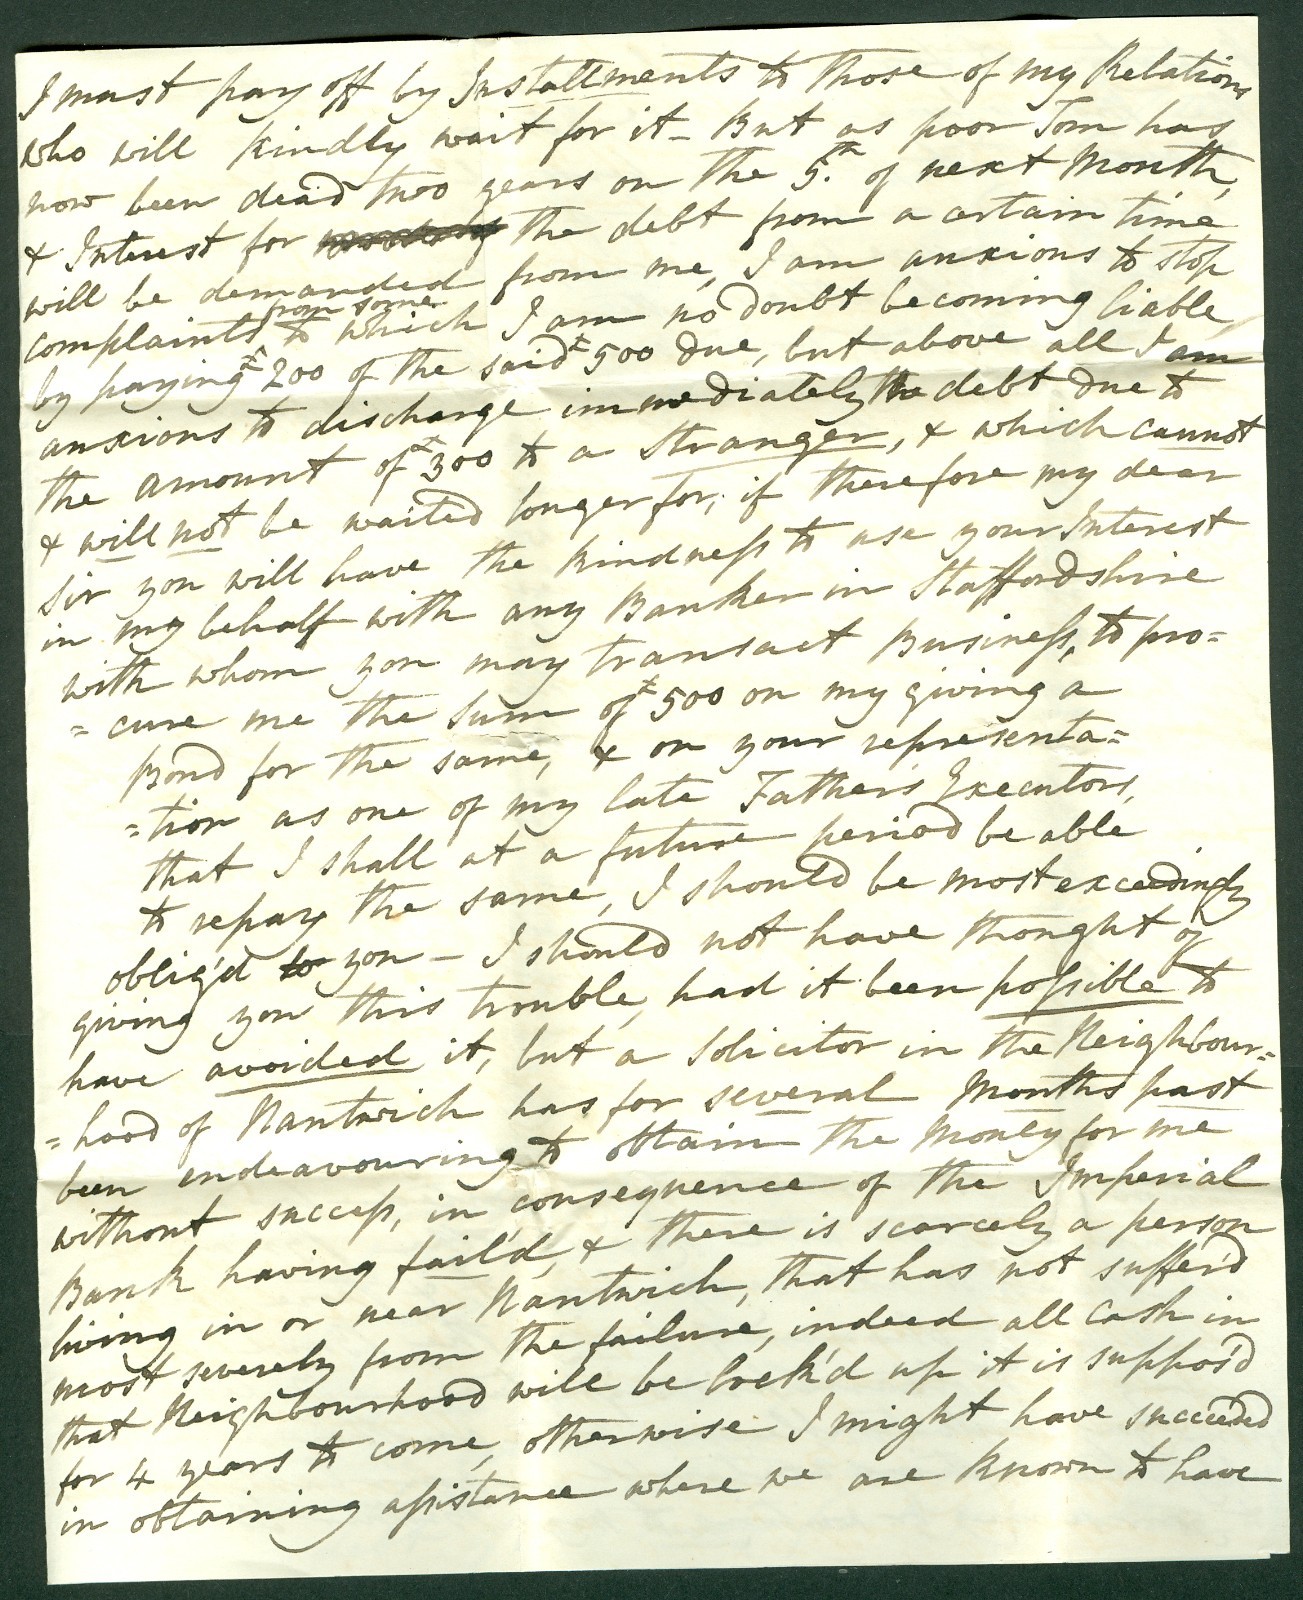 I must pay off by Installments to those of my Relations
who will kindly wait for it - But as poor Tom has
now been dead two years on the 5.th of next Month,
& Interest for the debt from a certain time
will be demanded from me, I am anxious to stop
complaints, from some to which I am no doubt becoming liable,
by paying £200 of the said £500 due, but above all I am
anxious to discharge immediately the debt due to
the amount of £300 to a Stranger, & which cannot
& will not be waited longer for; if therefore my dear
Sir you will have the kindness to use your Interest
in my behalf with any Banker in Staffordshire
with whom you may transact Business, to pro=
=cure me the Sum of £500 on my giving a
Bond for the same, & on your representa=
=tion as one of my late Father's Executors,
that I shall at a future period be able
to repay the same, I should be most exceedingly
oblig'd to you - I should not have thought of
giving you this trouble, had it been possible to
have avoided it, but a Solicitor in the Neighbour=
=hood of Nantwich has for several Months past
been endeavouring to obtain the Money for me
without success, in consequence of the Imperial
Bank having fail'd, & there is scarcely a person
living in or near Nantwich, that has not suffer'd
most severely from the failure, indeed all Cash in
that Neighbourhood will be lock'd up it is suppos'd
for 4 years to come, otherwise I might have succeeded
in obtaining assistance where we are known to have